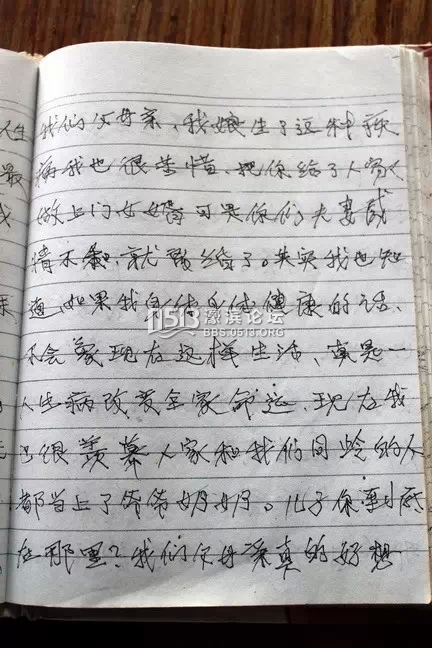 我们父母亲、我娘生了这种疾
病我也很苦惜、把你给了人家
做上门女婿可是你们夫妻感
情不和、就离婚了。其实我也知
道、如果我自体身体健康的话、
不会象现在这样生活、真是一
人生病改变全家命运、现在我
也很羡慕人家和我们同龄的人
都当上了爷爷奶奶。儿子你到底
在那里？我们父母亲真的好想
人生
最
11513 濠滨论坛
BBS.0513.ORG